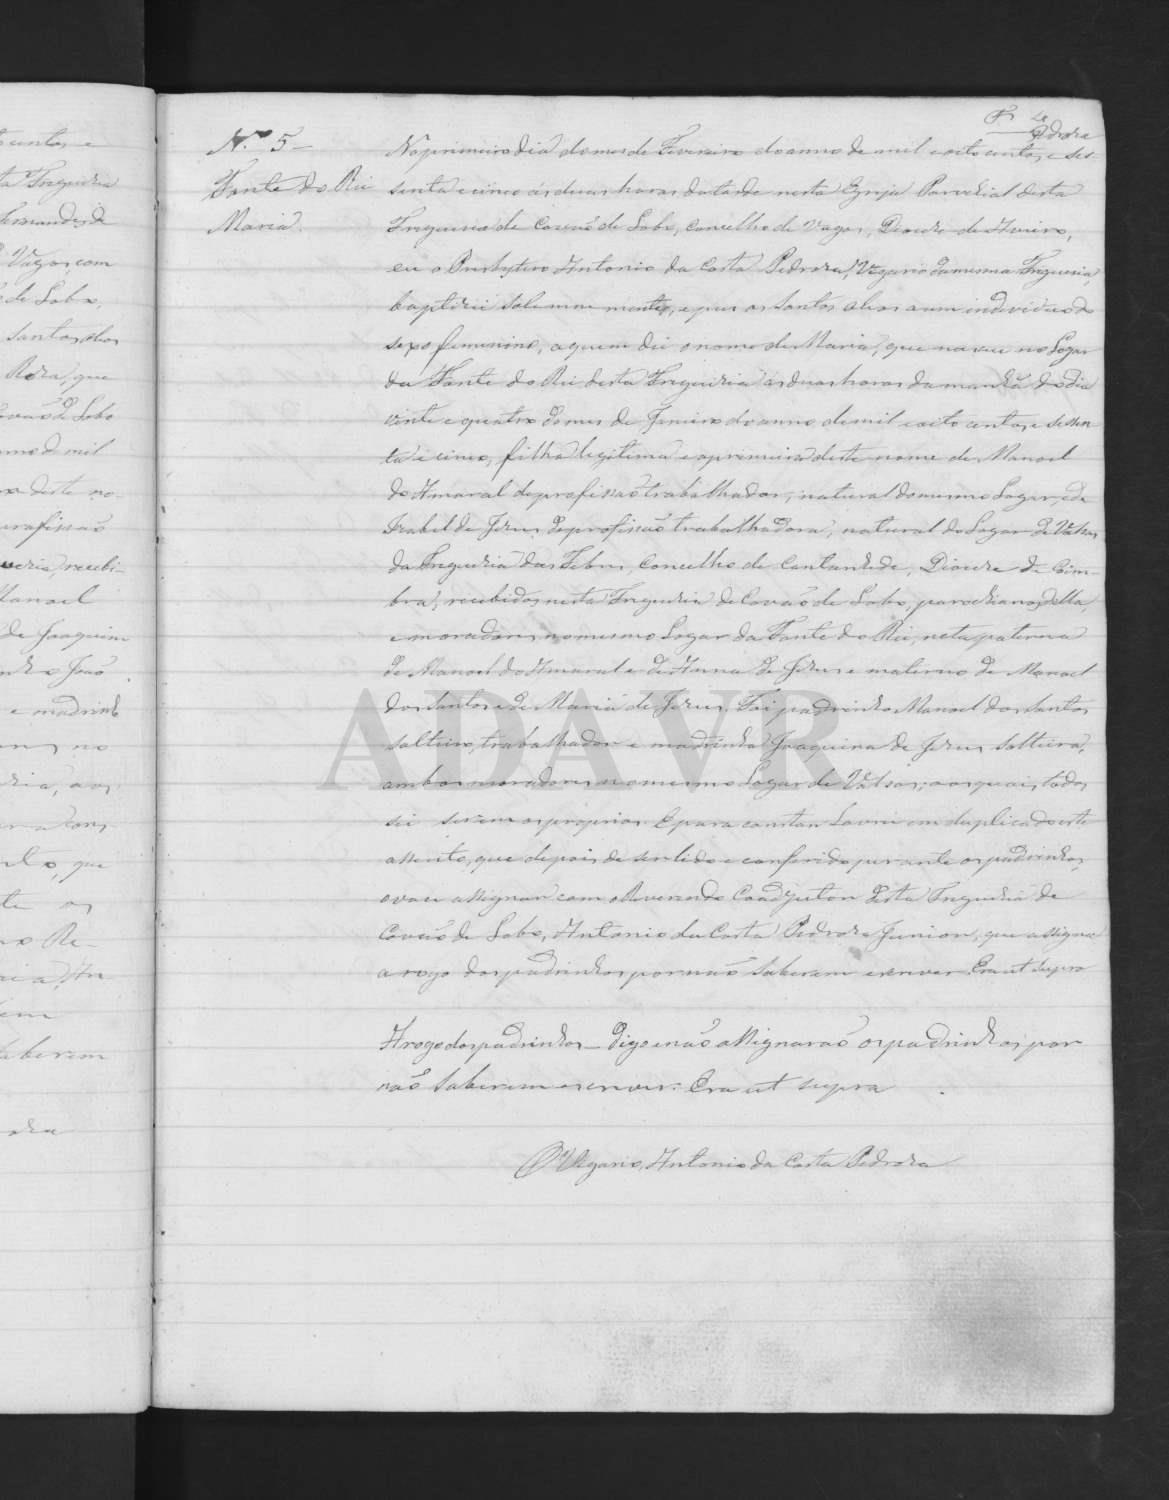 Pedroza
N.º 5 -
Fonte do Rei
Maria.
No primeiro dia do mes de Fevereiro do anno de mil e oito centos e ses-
senta e cinco ás duas horas da tarde nesta Egreja Parochial desta
Freguesia de Covão de Lobo, Concelho de Vagos, Diocese de Aveiro,
eu o Presbytero Antonio da Costa Pedroza, Vigario da mesma Freguesia,
baptizei solemne mente, e puz os Santos oleos a um individuo do
sexo femenino, a quem dei o nome de Maria, que naceu no Logar
da Fonte do Rei desta Freguezia ás duas horas da manhã do dia
vinte e quatro do mes de Janeiro do anno de mil e oito centos e sessen-
ta e cinco, filha legitima e a primeira deste nome de Manoel
do Amaral de profissão trabalhador, natural do mesmo Logar, e de
Izabel de Jezus, de profissão trabalhadora, natural do Logar de
da Freguezia das Febres, Concelho de Cantanhede, Diocese de Coim-
bra, recebidos nesta Freguezia de Covão de Lobo, parochianos della,
e moradores no mesmo Logar da Fonte do Rei, neta paterna
de Manoel do Amaral e de Anna de Jezus e materna de Manoel
dos Santos e de Maria de Jezus. Foi padrinho Manoel dos Santos
solteiro, trabalhador e madrinha Joaquina de Jezus solteira,
ambos moradores no mesmo Logar de os quais todos
sei serem os proprios. E para constar Lavrei em duplicado este
assento, que depois de ser lido e conferido perante os padrinhos,
o vou assignar com o Reverendo Coadjutor desta Freguezia de
Covão de Lobo, Antonio da Costa Pedroza Junior, que assigna
a rogo dos padrinhos por não saberem escrever. Era ut supra
A rogo dos padrinhos - digo e não assignarão os padrinhos por
não saberem escrever. Era ut supra
O Vigario, Antonio da Costa Pedroza
ADAVR